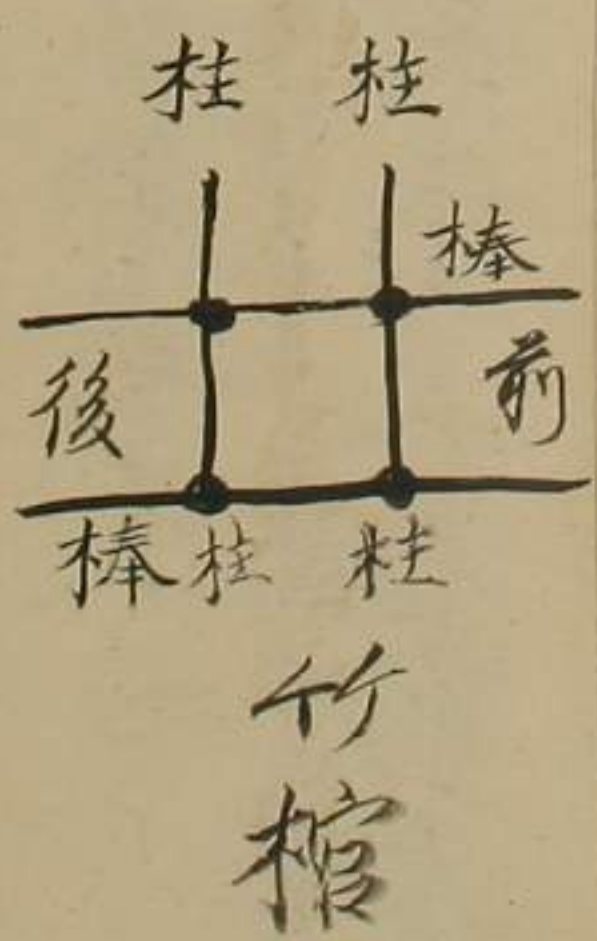 柱 柱
棒
後 前
棒 柱 柱
竹
棺